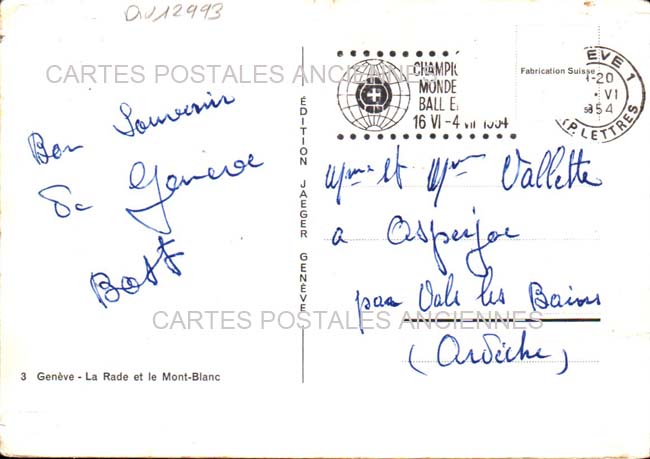 QV12993
CARTES POSTALES ANCIENNES
CHAMPI
MONDE
BALL E
16 VI-4 VII 1954
Fabrication Suisse
EVE 1
-20
VI
1954
P. LETTRES
Bon Souvenir
de Genève
ÉDITION JAEGER GENÈVE
Mme et Mr Vallette
a Asperjoc
par Vals les Bains
(Ardèche)
CARTES POSTALES ANCIENNES
3 Genève - La Rade et le Mont-Blanc